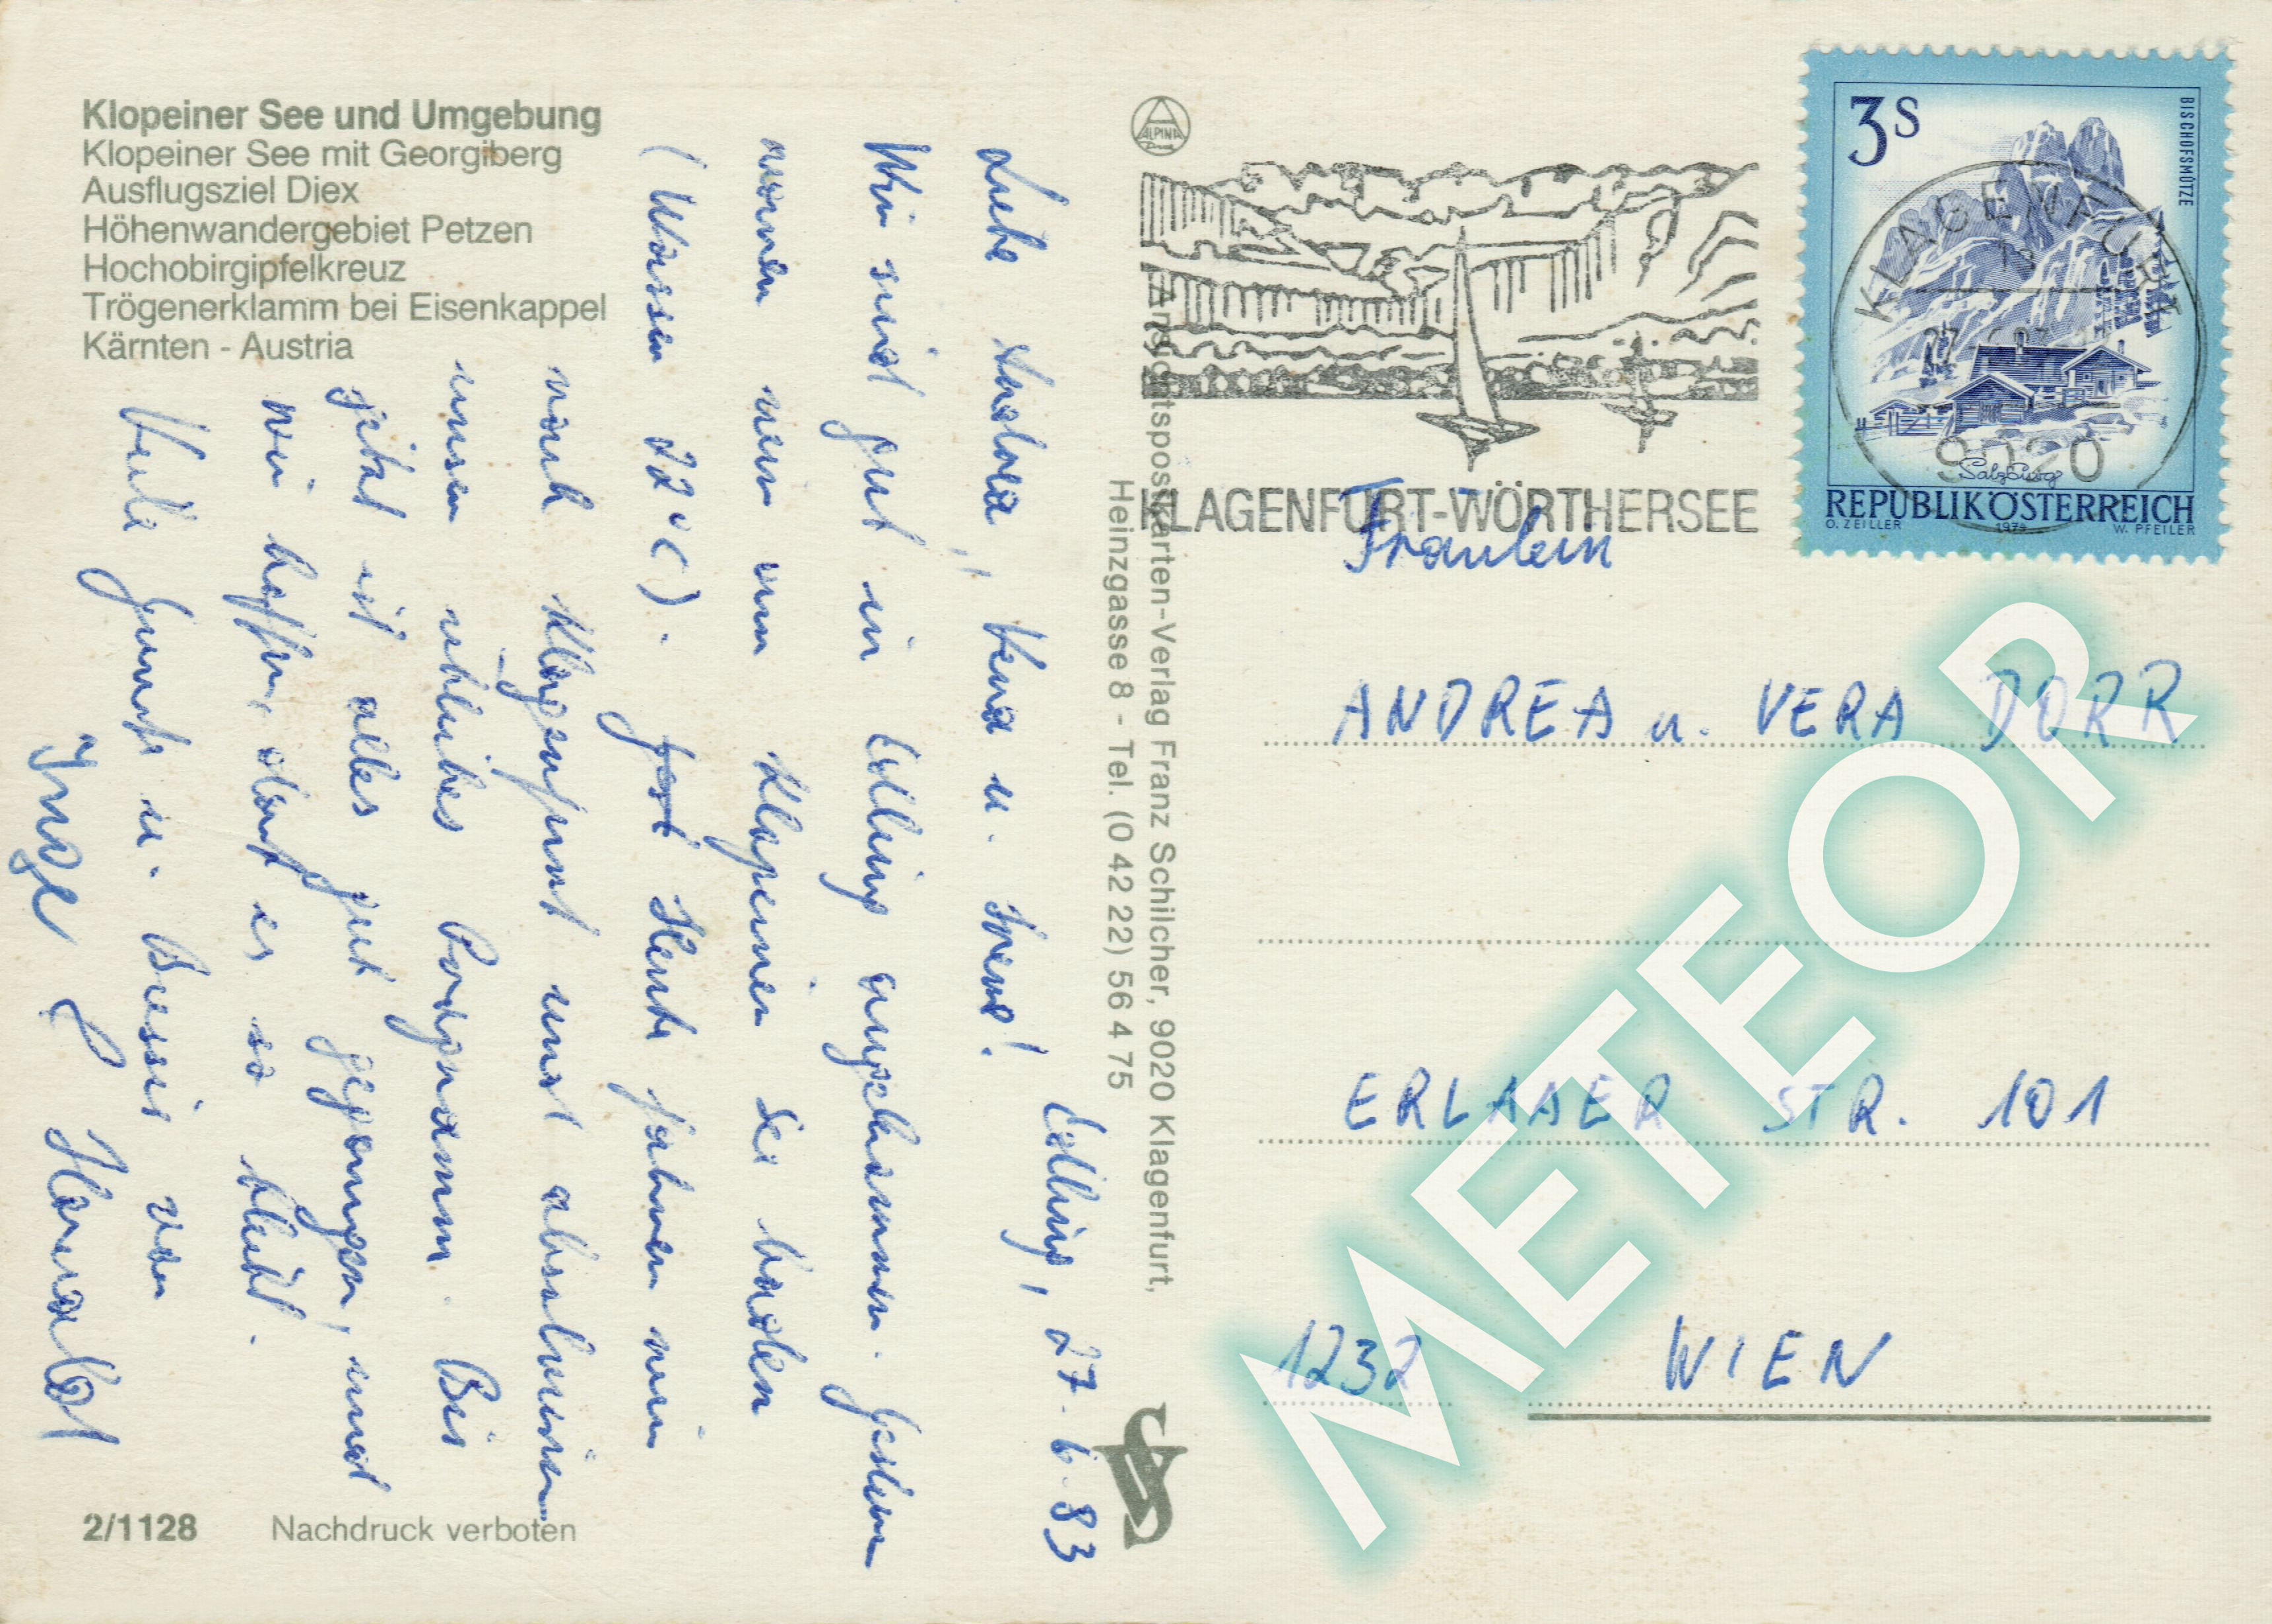 Klopeiner See und Umgebung
Klopeiner See mit Georgiberg
Ausflugsziel Diex
Höhenwandergebiet Petzen
Hochobirgipfelkreuz
Trögenerklamm bei Eisenkappel
Kärnten - Austria
Edling, 27.6.83
Liebe Andrea, Vera u. Irene!
Wir sind gut in Edling angekommen. Gestern
waren wir im Klopeiner See baden
(Wasser 22°C). Heute fahren wir
nach Klagenfurt und absolvieren
unser übliches Programm. Bis
jetzt ist alles gut gegangen, und
wir hoffen, daß es so bleibt.
Viele Grüße u. Bussis von
Inge & Harald
2/1128 Nachdruck verboten
ALPINA
Ansichtspostkarten-Verlag Franz Schilcher, 9020 Klagenfurt,
Heinzgasse 8 - Tel. (0 42 22) 56 4 75
KLAGENFURT-WÖRTHERSEE
3S
BISCHOFSMÜTZE
KLAGENFURT
9020
Salzburg
REPUBLIK ÖSTERREICH
O. ZEILLER 1974 W. PFEILER
Fräulein
ANDREA u. VERA DORR
ERLAAER STR. 101
1232 WIEN
METEOR